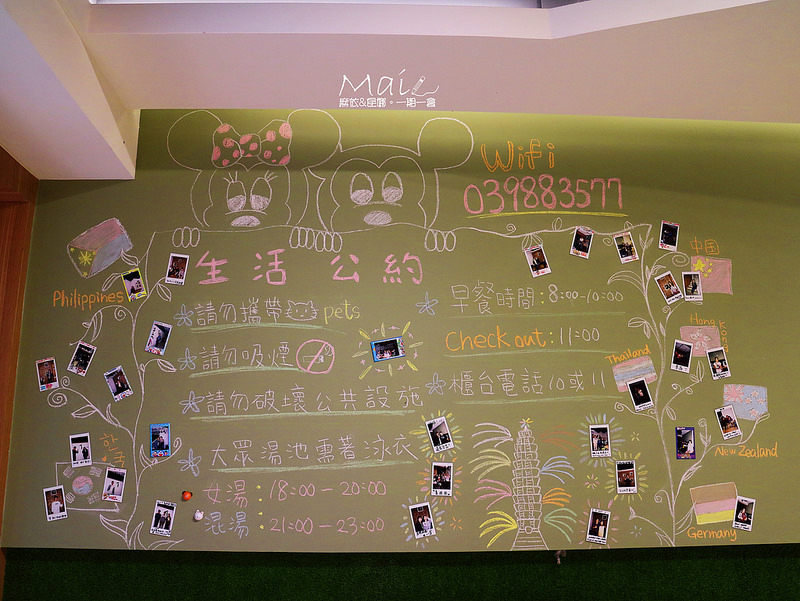 Mai
摩放&座聊。一期一會
Wifi
039883577
生活公約
請勿攜帶 pets
請勿吸煙
請勿破壞公共設施
大眾湯池需著泳衣
女湯：18:00-20:00
混湯：21:00-23:00
早餐時間：8:00-10:00
Check out：11:00
櫃台電話10或11
Philippines
한국
中国
Hong Kong
Thailand
New Zealand
Germany